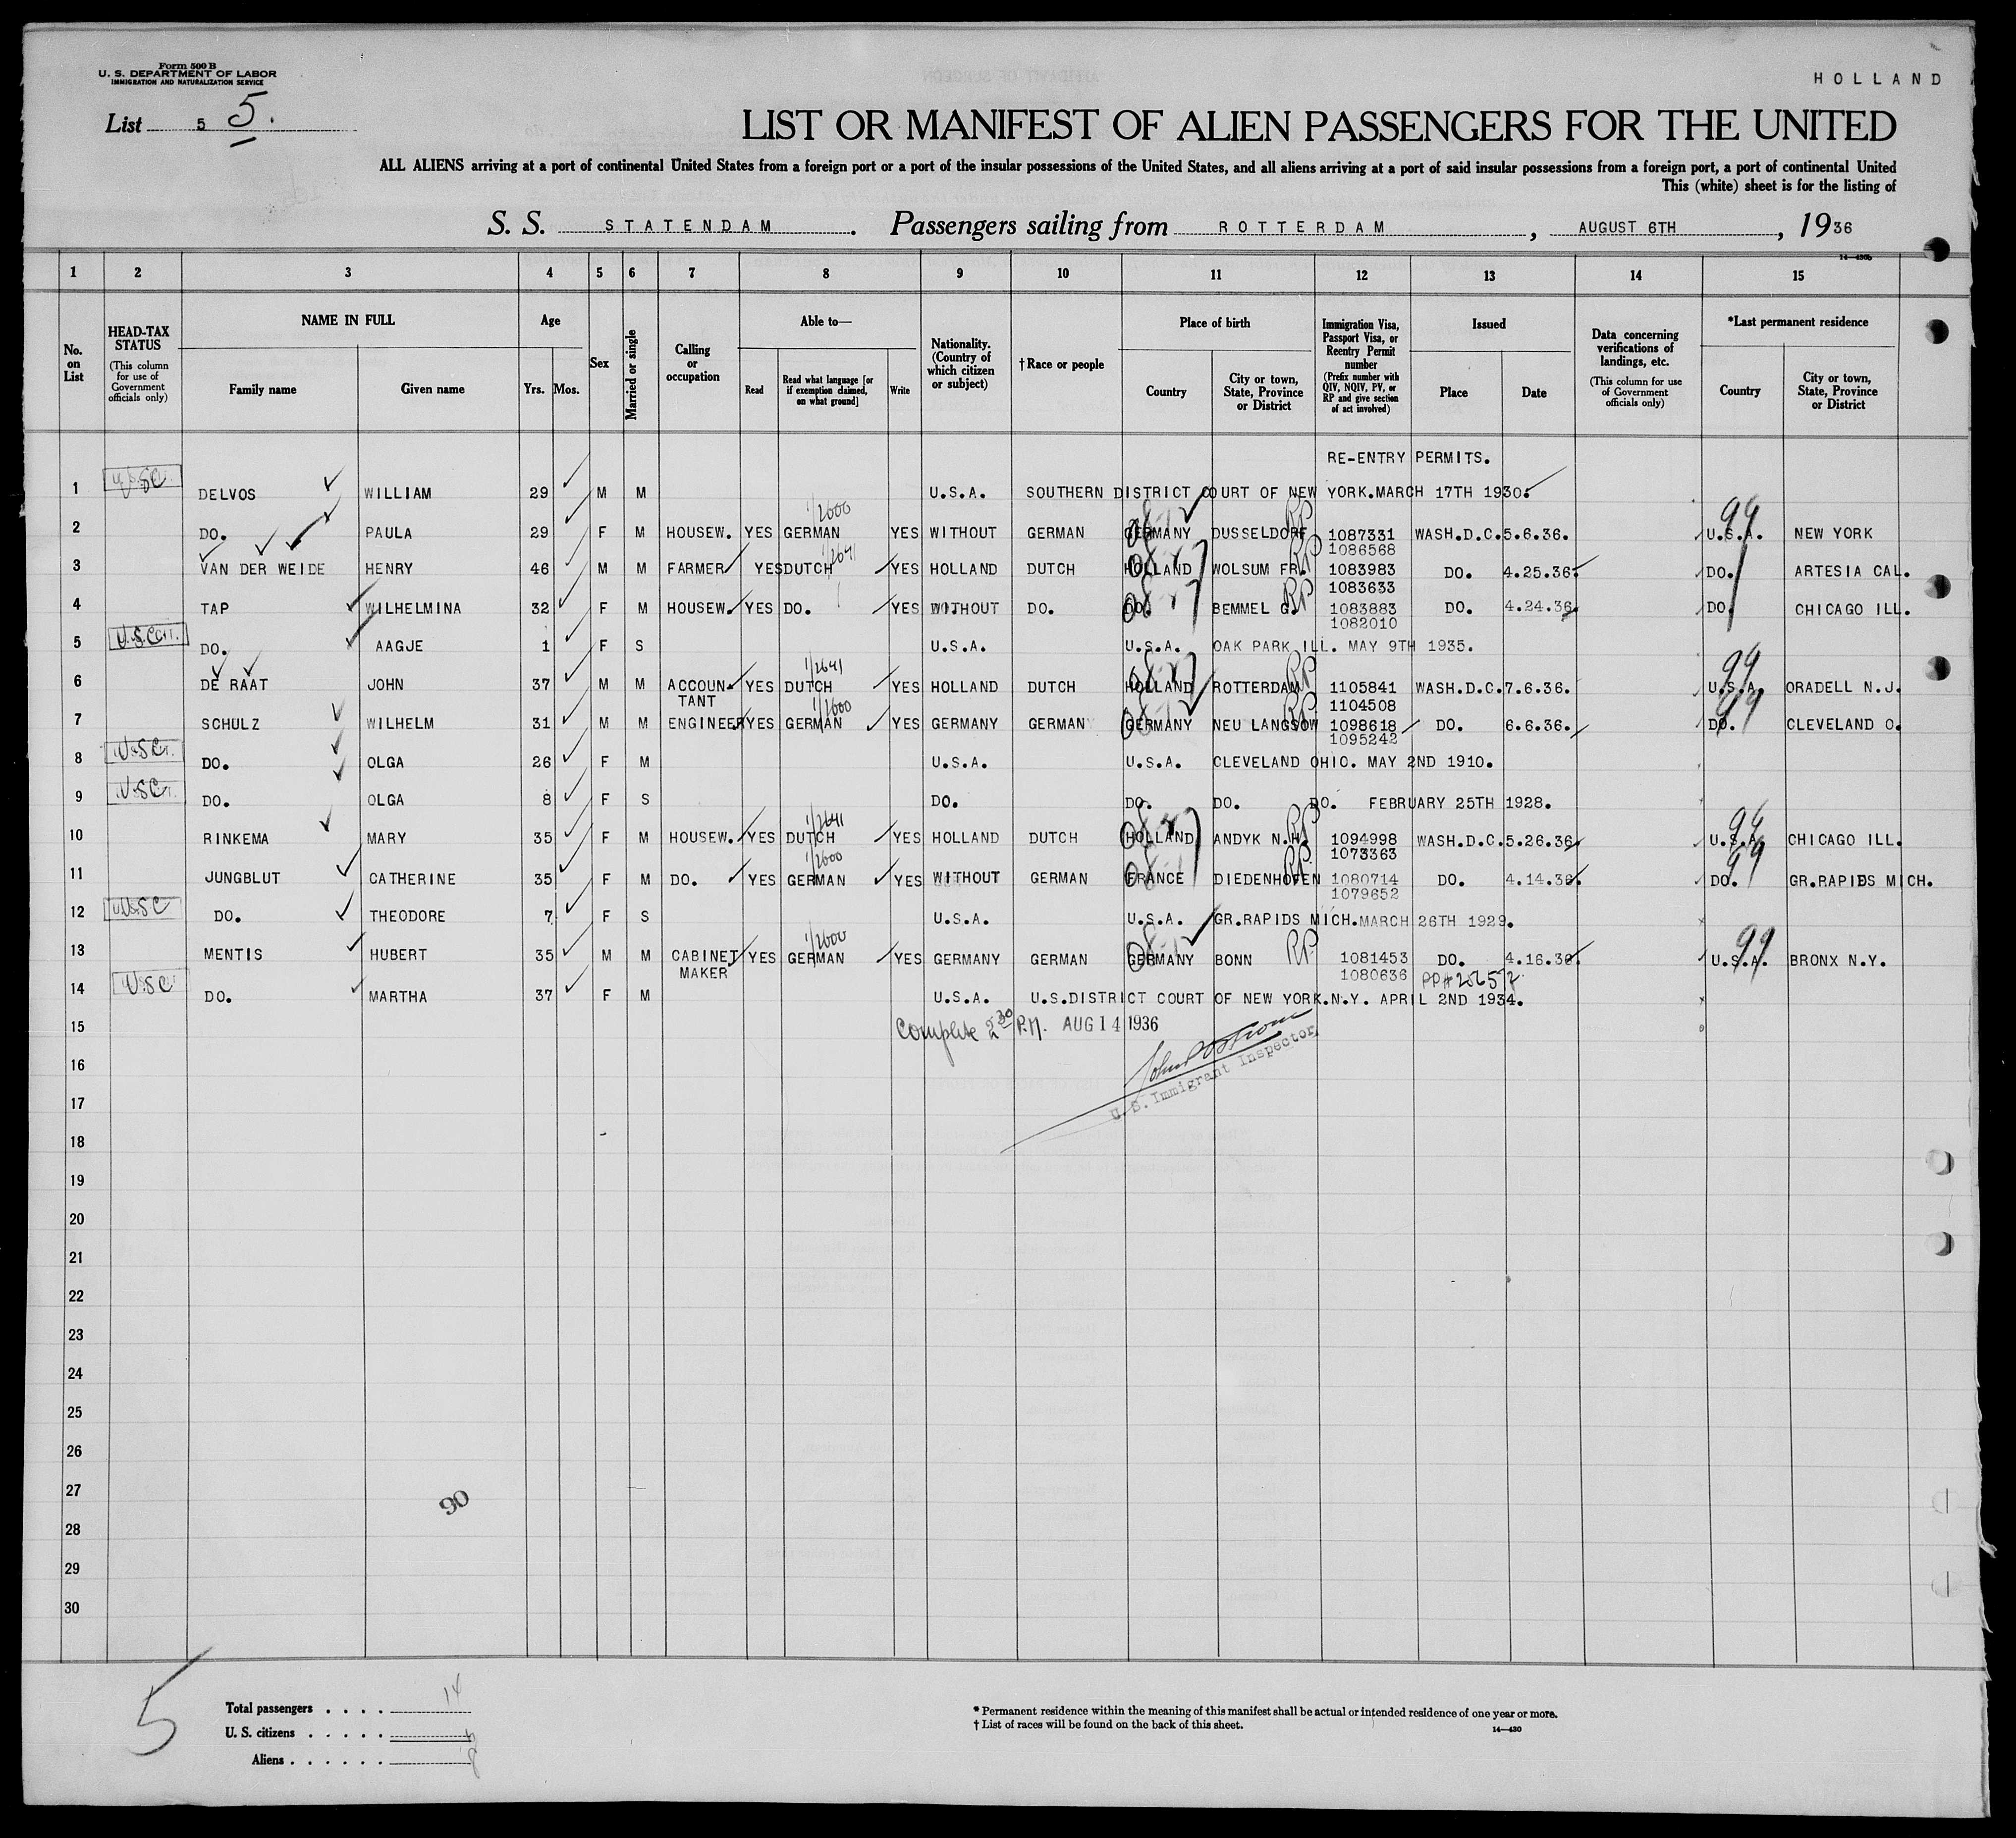 Form 500 B
U. S. DEPARTMENT OF LABOR
IMMIGRATION AND NATURALIZATION SERVICE
HOLLAND
List 5 5.
LIST OR MANIFEST OF ALIEN PASSENGERS FOR THE UNITED
ALL ALIENS arriving at a port of continental United States from a foreign port or a port of the insular possessions of the United States, and all aliens arriving at a port of said insular possessions from a foreign port, a port of continental United
This (white) sheet is for the listing of
S. S. STATENDAM. Passengers sailing from ROTTERDAM, AUGUST 6TH, 1936
1 2 3 4 5 6 7 8 9 10 11 12 13 14 15
No. on List
HEAD-TAX STATUS (This column for use of Government officials only)
NAME IN FULL Family name Given name
Age Yrs. Mos.
Sex
Married or single
Calling or occupation
Able to— Read Read what language [or if exemption claimed, on what ground] Write
Nationality. (Country of which citizen or subject)
†Race or people
Place of birth Country City or town, State, Province or District
Immigration Visa, Passport Visa, or Reentry Permit number (Prefix number with QIV, NQIV, PV, or RP and give section of act involved)
Issued Place Date
Data concerning verifications of landings, etc. (This column for use of Government officials only)
*Last permanent residence Country City or town, State, Province or District
RE-ENTRY PERMITS.
1 USC DELVOS WILLIAM 29 M M U.S.A. SOUTHERN DISTRICT COURT OF NEW YORK.MARCH 17TH 1930.
1/2600 99
2 DO. PAULA 29 F M HOUSEW. YES GERMAN YES WITHOUT GERMAN GERMANY DUSSELDORF RP 1087331 WASH.D.C. 5.6.36. U.S.A. NEW YORK
1/2641 1086568
3 VAN DER WEIDE HENRY 46 M M FARMER YES DUTCH YES HOLLAND DUTCH HOLLAND WOLSUM FR. RP 1083983 DO. 4.25.36. DO. ARTESIA CAL.
1083633
4 TAP WILHELMINA 32 F M HOUSEW. YES DO. YES WITHOUT DO. DO. BEMMEL G. RP 1083883 DO. 4.24.36. DO. CHICAGO ILL.
1082010
5 DO. AAGJE 1 F S U.S.A. U.S.A. OAK PARK ILL. MAY 9TH 1935.
1/2641 99
6 DE RAAT JOHN 37 M M ACCOUN- YES DUTCH YES HOLLAND DUTCH HOLLAND ROTTERDAM RP 1105841 WASH.D.C. 7.6.36. U.S.A. ORADELL N.J.
TANT 1/2600 1104508 99
7 SCHULZ WILHELM 31 M M ENGINEER YES GERMAN YES GERMANY GERMAN GERMANY NEU LANGSOW RP 1098618 DO. 6.6.36. DO. CLEVELAND O.
1095242
8 DO. OLGA 26 F M U.S.A. U.S.A. CLEVELAND OHIO. MAY 2ND 1910.
9 DO. OLGA 8 F S DO. DO. DO. DO. FEBRUARY 25TH 1928.
1/2641 99
10 RINKEMA MARY 35 F M HOUSEW. YES DUTCH YES HOLLAND DUTCH HOLLAND ANDYK N.H. RP 1094998 WASH.D.C. 5.26.36. U.S.A. CHICAGO ILL.
1/2600 1073363 99
11 JUNGBLUT CATHERINE 35 F M DO. YES GERMAN YES WITHOUT GERMAN FRANCE DIEDENHOFEN RP 1080714 DO. 4.14.36. DO. GR.RAPIDS MICH.
1079652
12 USC DO. THEODORE 7 F S U.S.A. U.S.A. GR.RAPIDS MICH. MARCH 26TH 1929.
1/2600 99
13 MENTIS HUBERT 35 M M CABINET YES GERMAN YES GERMANY GERMAN GERMANY BONN RP 1081453 DO. 4.16.36. U.S.A. BRONX N.Y.
MAKER 1080636
14 USC DO. MARTHA 37 F M U.S.A. U.S.DISTRICT COURT OF NEW YORK.N.Y. APRIL 2ND 1934.
15 Complete 2 30 P.M. AUG 14 1936
16
U. S. Immigrant Inspector
17
18
19
20
21
22
23
24
25
26
27
90
28
29
30
5
Total passengers . . . . 14
U. S. citizens . . . . .
Aliens . . . . . .
* Permanent residence within the meaning of this manifest shall be actual or intended residence of one year or more.
† List of races will be found on the back of this sheet.
14—430